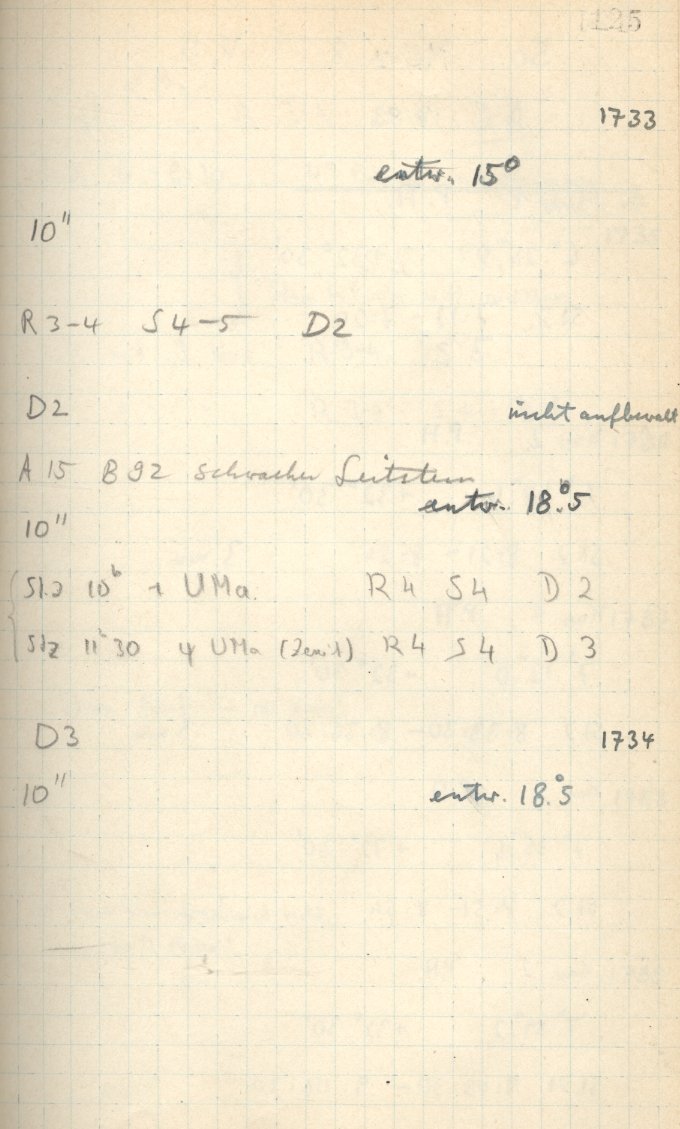 125
1733
entw. 15°
10"
R 3-4 S 4-5 D2
D2
nicht aufbewalt
A 15 B 92 schwacher Leitstern
entw. 18°.5
10"
10h ι UMa. R4 S4 D2
11h 30 ψ UMa (Zenit) R4 S4 D3
D3
1734
10"
entw. 18°.5